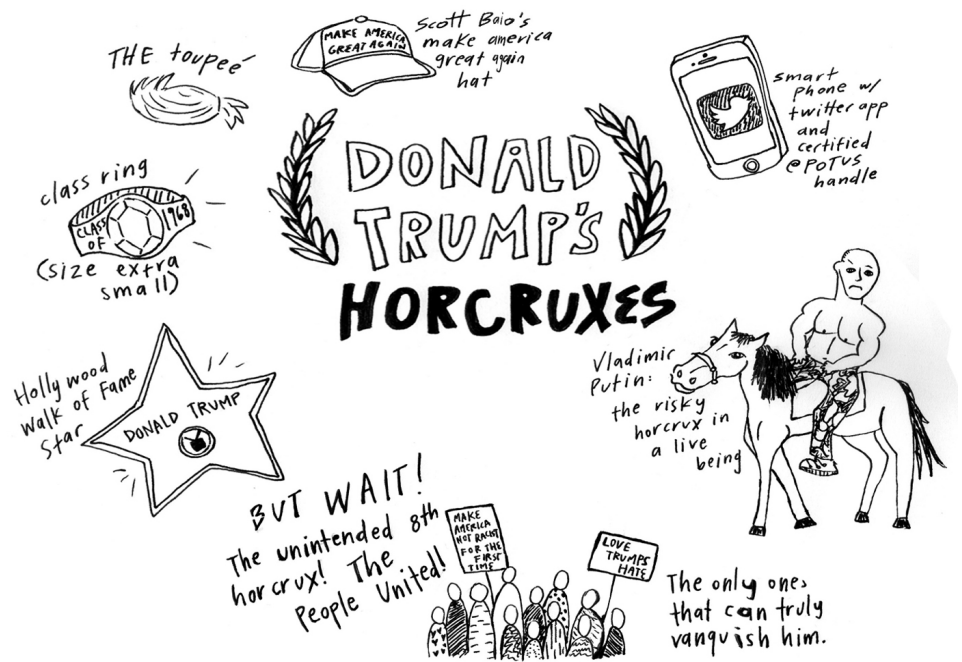 THE toupeé
MAKE AMERICA
GREAT AGAIN
Scott Baio's
make america
great again
hat
smart
phone w/
twitter app
and
certified
@POTUS
handle
class ring
CLASS
OF
1968
(size extra
small)
DONALD
TRUMP'S
HORCRUXES
Hollywood
Walk of Fame
Star
DONALD TRUMP
Vladimir
Putin:
the risky
horcrux in
a live
being
BUT WAIT!
The unintended 8th
horcrux! The
People United!
MAKE
AMERICA
NOT RACIST
FOR THE
FIRST
TIME
LOVE
TRUMPS
HATE
The only ones
that can truly
vanquish him.